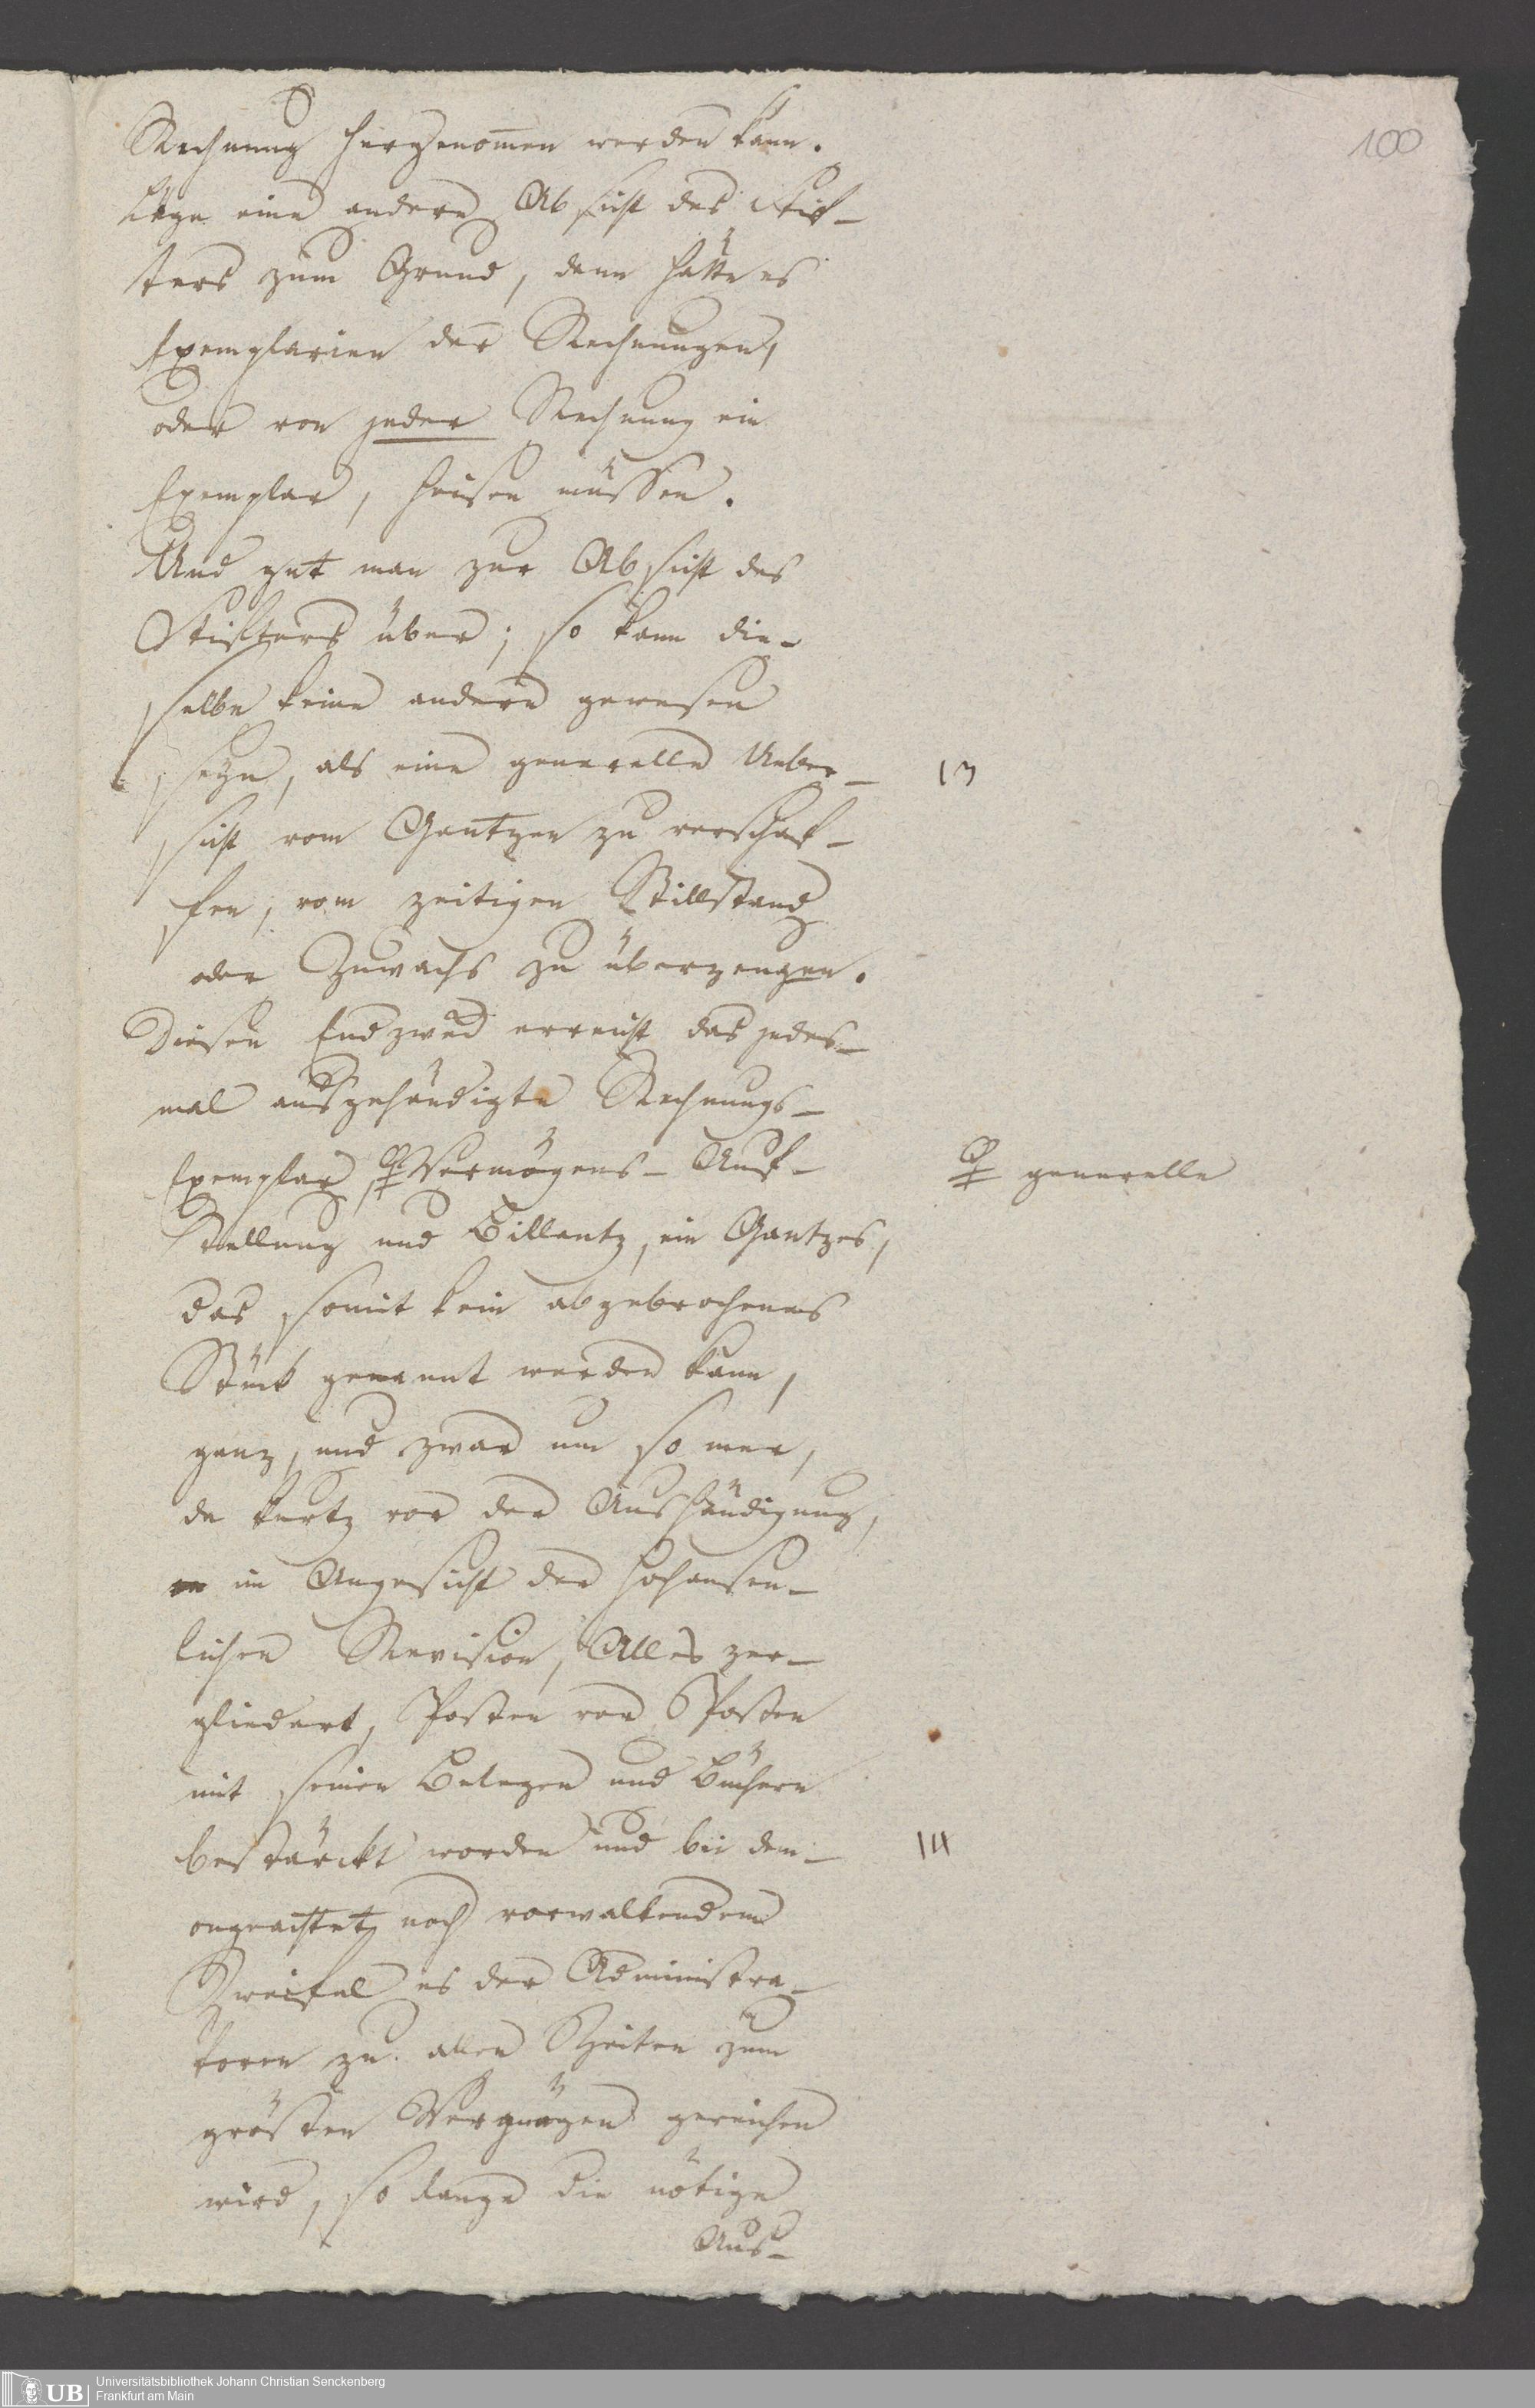 100
Rechnung hergenom̄en werden kann.
Läge eine andere Absicht des Stif-
ters zum Grund, denn hätte es
Exemplarien der Rechnungen,
oder von jeder Rechnung ein
Exemplar, heisen müssen.
Und geht man zur Absicht des
Stifters über; so kann die-
selbe keine andere gewesen
seyn, als eine generelle Ueber-
13
sicht vom Gantzen zu verschaf-
fen, vom zeitigen Stillstand
oder Zuwachs zu überzeugen.
Diesen Endzweck erreicht das jedes-
mal ausgehändigte Rechnungs-
Exemplar, Vermögens-Auf-
generelle
stellung und Billantz, ein Gantzes,
das somit kein abgebrochenes
Stück genannt werden kann,
ganz, und zwar um so mer,
da kurtz vor der Aushändigung,
im Angesicht der hochansehn-
lichen Revision, Alles zer-
gliedert, Posten vor Posten
mit seinen Belegen und Büchern
bestärckt worden und bei dem-
14
ongeachtet noch vorwaltendem
Zweifel es der Administra-
toren zu allen Zeiten zum
grösten Vergnügen gereichen
wird, so lange die nötige
Aus-
Universitätsbibliothek Johann Christian Senckenberg
Frankfurt am Main
UB